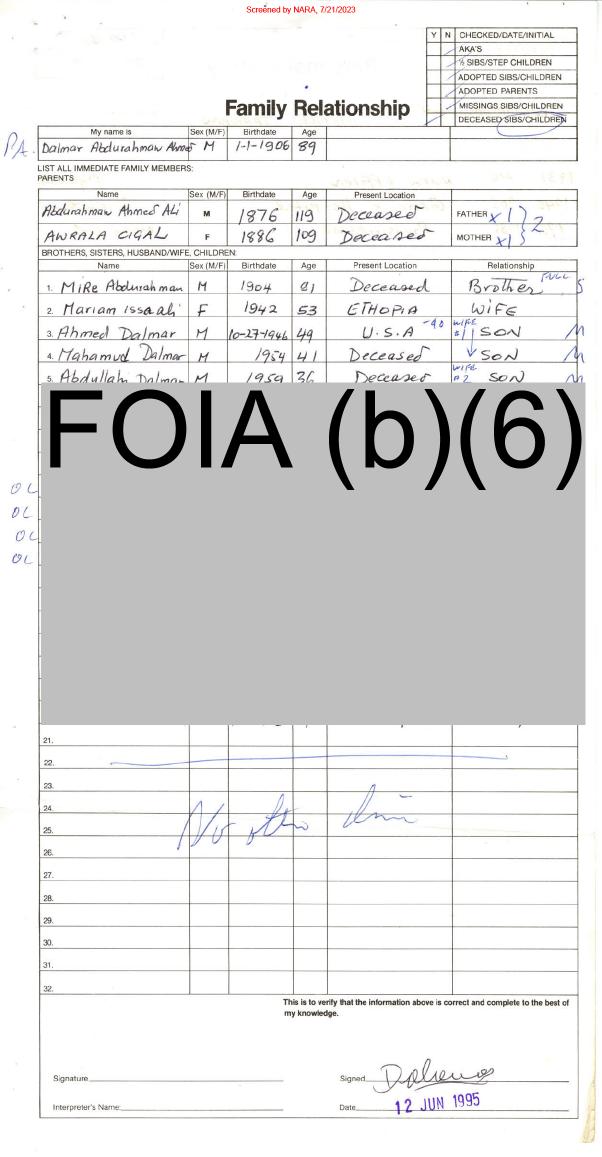 Screened by NARA, 7/21/2023
Y N CHECKED/DATE/INITIAL
AKA'S
½ SIBS/STEP CHILDREN
ADOPTED SIBS/CHILDREN
ADOPTED PARENTS
MISSINGS SIBS/CHILDREN
DECEASED SIBS/CHILDREN
Family Relationship
My name is Sex (M/F) Birthdate Age
PA. Dalmar Abdurahman Ahmed M 1-1-1906 89
LIST ALL IMMEDIATE FAMILY MEMBERS:
PARENTS
Name Sex (M/F) Birthdate Age Present Location
Abdurahman Ahmed Ali M 1876 119 Deceased FATHER x1
AWRALA CIGAL F 1886 109 Deceased MOTHER x1 2
BROTHERS, SISTERS, HUSBAND/WIFE, CHILDREN:
Name Sex (M/F) Birthdate Age Present Location Relationship
1. Mire Abdurahman M 1904 Deceased Brother FULL S
2. Mariam issa ali F 1942 53 ETHOPIA WIFE
3. Ahmed Dalmar M 10-27-1946 49 U.S.A -90 WIFE #1 SON M
4. Mahamud Dalmar M 1954 41 Deceased SON M
5. Abdullahi Dalmar M 1959 36 Deceased WIFE #2 SON M
FOIA (b)(6)
OC
OC
OC
OC
21.
22.
23.
24.
25.
No other
26.
27.
28.
29.
30.
31.
32.
This is to verify that the information above is correct and complete to the best of
my knowledge.
Signature Signed
Interpreter's Name: Date 12 JUN 1995